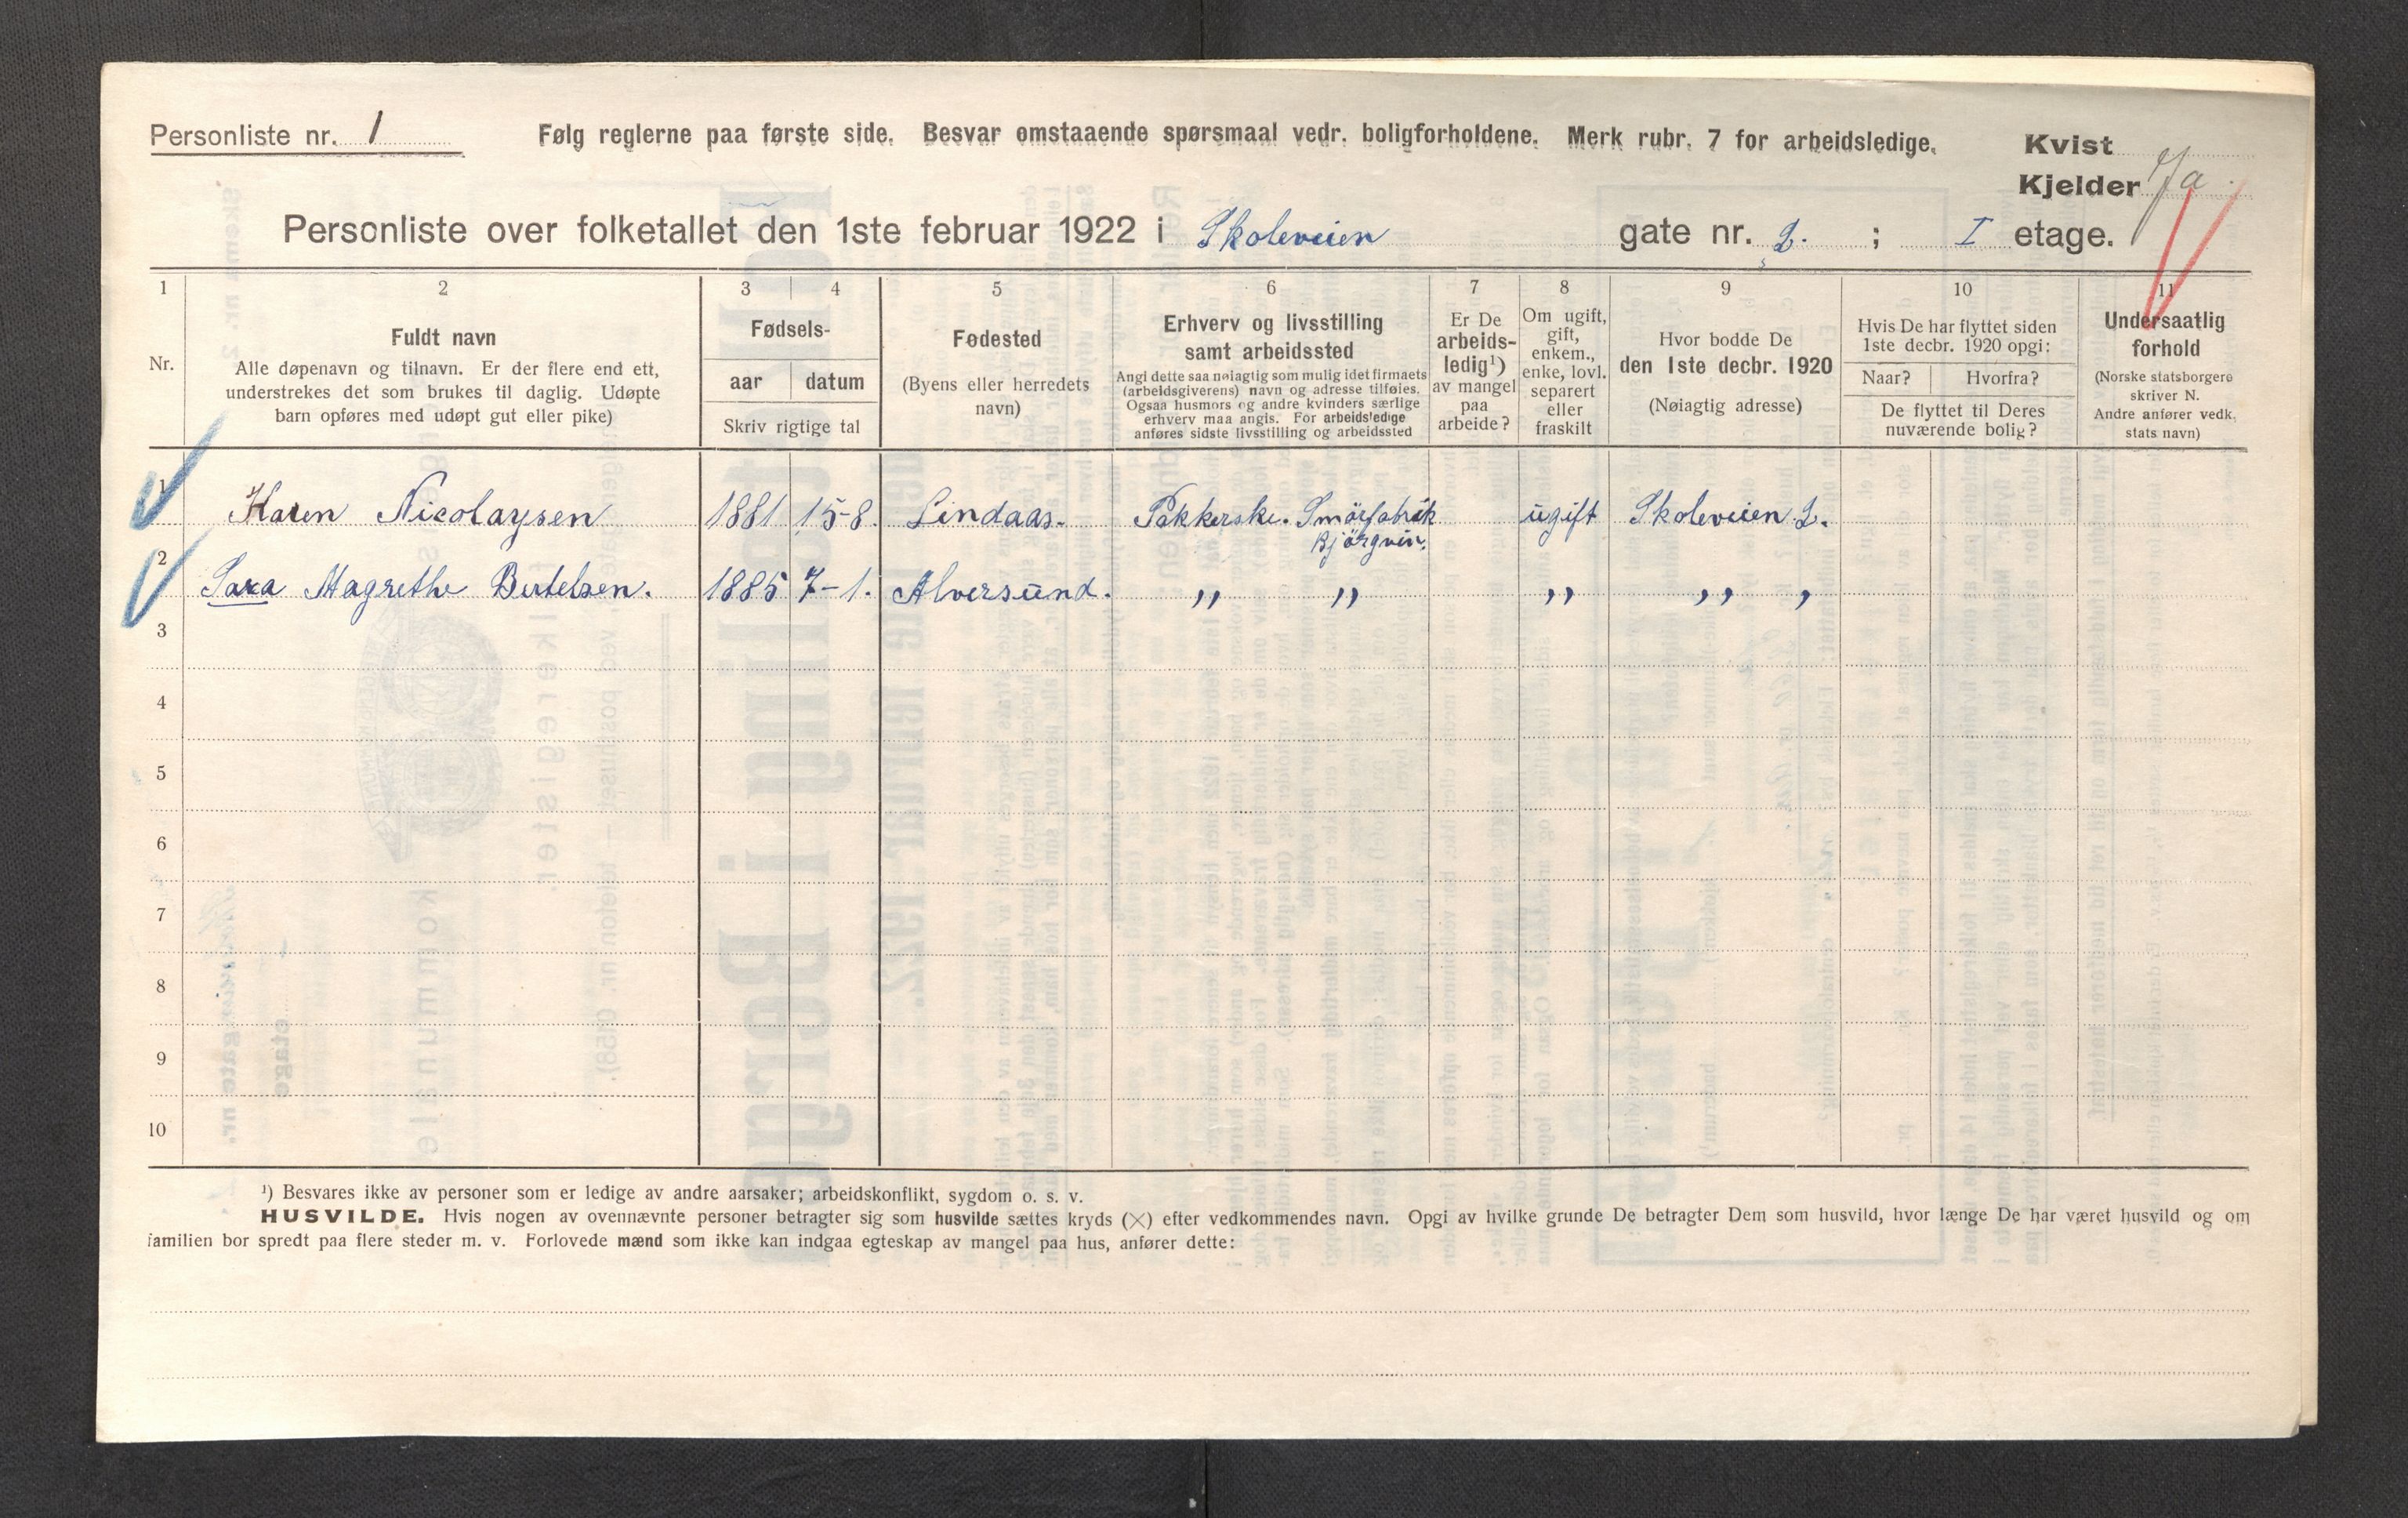 Personliste nr. 1
Følg reglerne paa første side. Besvar omstaaende spørsmaal vedr. boligforholdene. Merk rubr. 7 for arbeidsledige.
Kvist
Kjelder Ja.
Personliste over folketallet den 1ste februar 1922 i Skoleveien gate nr. 2. ; I etage.
1 2 3 4 5 6 7 8 9 10 11
Nr.
Fuldt navn
Alle døpenavn og tilnavn. Er der flere end ett,
understrekes det som brukes til daglig. Udøpte
barn opføres med udøpt gut eller pike)
Fødsels-
aar datum
Skriv rigtige tal
Fødested
(Byens eller herredets
navn)
Erhverv og livsstilling
samt arbeidssted
Angi dette saa nøiagtig som mulig idet firmaets
(arbeidsgiverens) navn og adresse tilføies.
Ogsaa husmors og andre kvinders særlige
erhverv maa angis. For arbeidsledige
anføres sidste livsstilling og arbeidssted
Er De
arbeids-
ledig¹)
av mangel
paa
arbeide?
Om ugift,
gift,
enkem.,
enke, lovl.
separert
eller
fraskilt
Hvor bodde De
den 1ste decbr. 1920
(Nøiagtig adresse)
Hvis De har flyttet siden
1ste decbr. 1920 opgi:
Naar? Hvorfra?
De flyttet til Deres
nuværende bolig?
Undersaatlig
forhold
(Norske statsborgere
skriver N.
Andre anfører vedk.
stats navn)
1 Karen Nicolaysen 1881 15-8. Lindaas. Pakkerske. Smörfabrik ugift Skoleveien 2.
Björgvin.
2 Sara Magrethe Bertelsen. 1885 7-1. Alversund. ,, ,, ,, ,, ,
3
4
5
6
7
8
9
10
¹) Besvares ikke av personer som er ledige av andre aarsaker; arbeidskonflikt, sygdom o. s. v.
HUSVILDE. Hvis nogen av ovennævnte personer betragter sig som husvilde sættes kryds (×) efter vedkommendes navn. Opgi av hvilke grunde De betragter Dem som husvild, hvor længe De har været husvild og om
familien bor spredt paa flere steder m. v. Forlovede mænd som ikke kan indgaa egteskap av mangel paa hus, anfører dette: